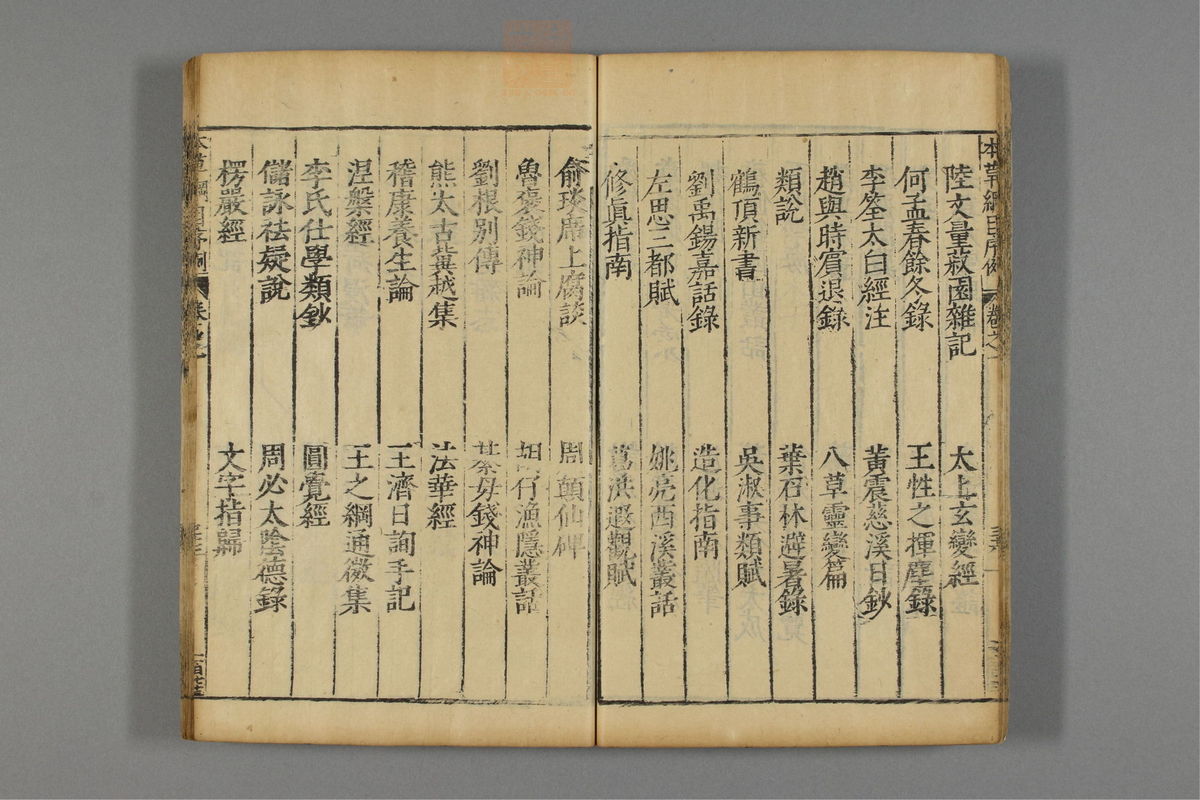 陸文量菽園雜記　太上玄變經
何孟春餘冬錄　王性之揮麈錄
李筌太白經注　黃震慈溪日鈔
趙與時賓退錄　八草靈變篇
類說　葉石林避暑錄
鶴頂新書　吳淑事類賦
劉禹錫嘉話錄　造化指南
左思三都賦　姚亮西溪叢話
修眞指南　葛洪遐觀賦
俞琰席上腐談　周顛仙碑
魯褒錢神論　胡仔漁隱叢話
劉根別傳　綦毋錢神論
熊太古冀越集　法華經
稽康養生論　王濟日詢手記
涅槃經　王之綱通微集
李氏仕學類鈔　圓覺經
儲詠祛疑說　周必大陰德錄
楞嚴經　文字指歸
本草綱目序例　卷之一